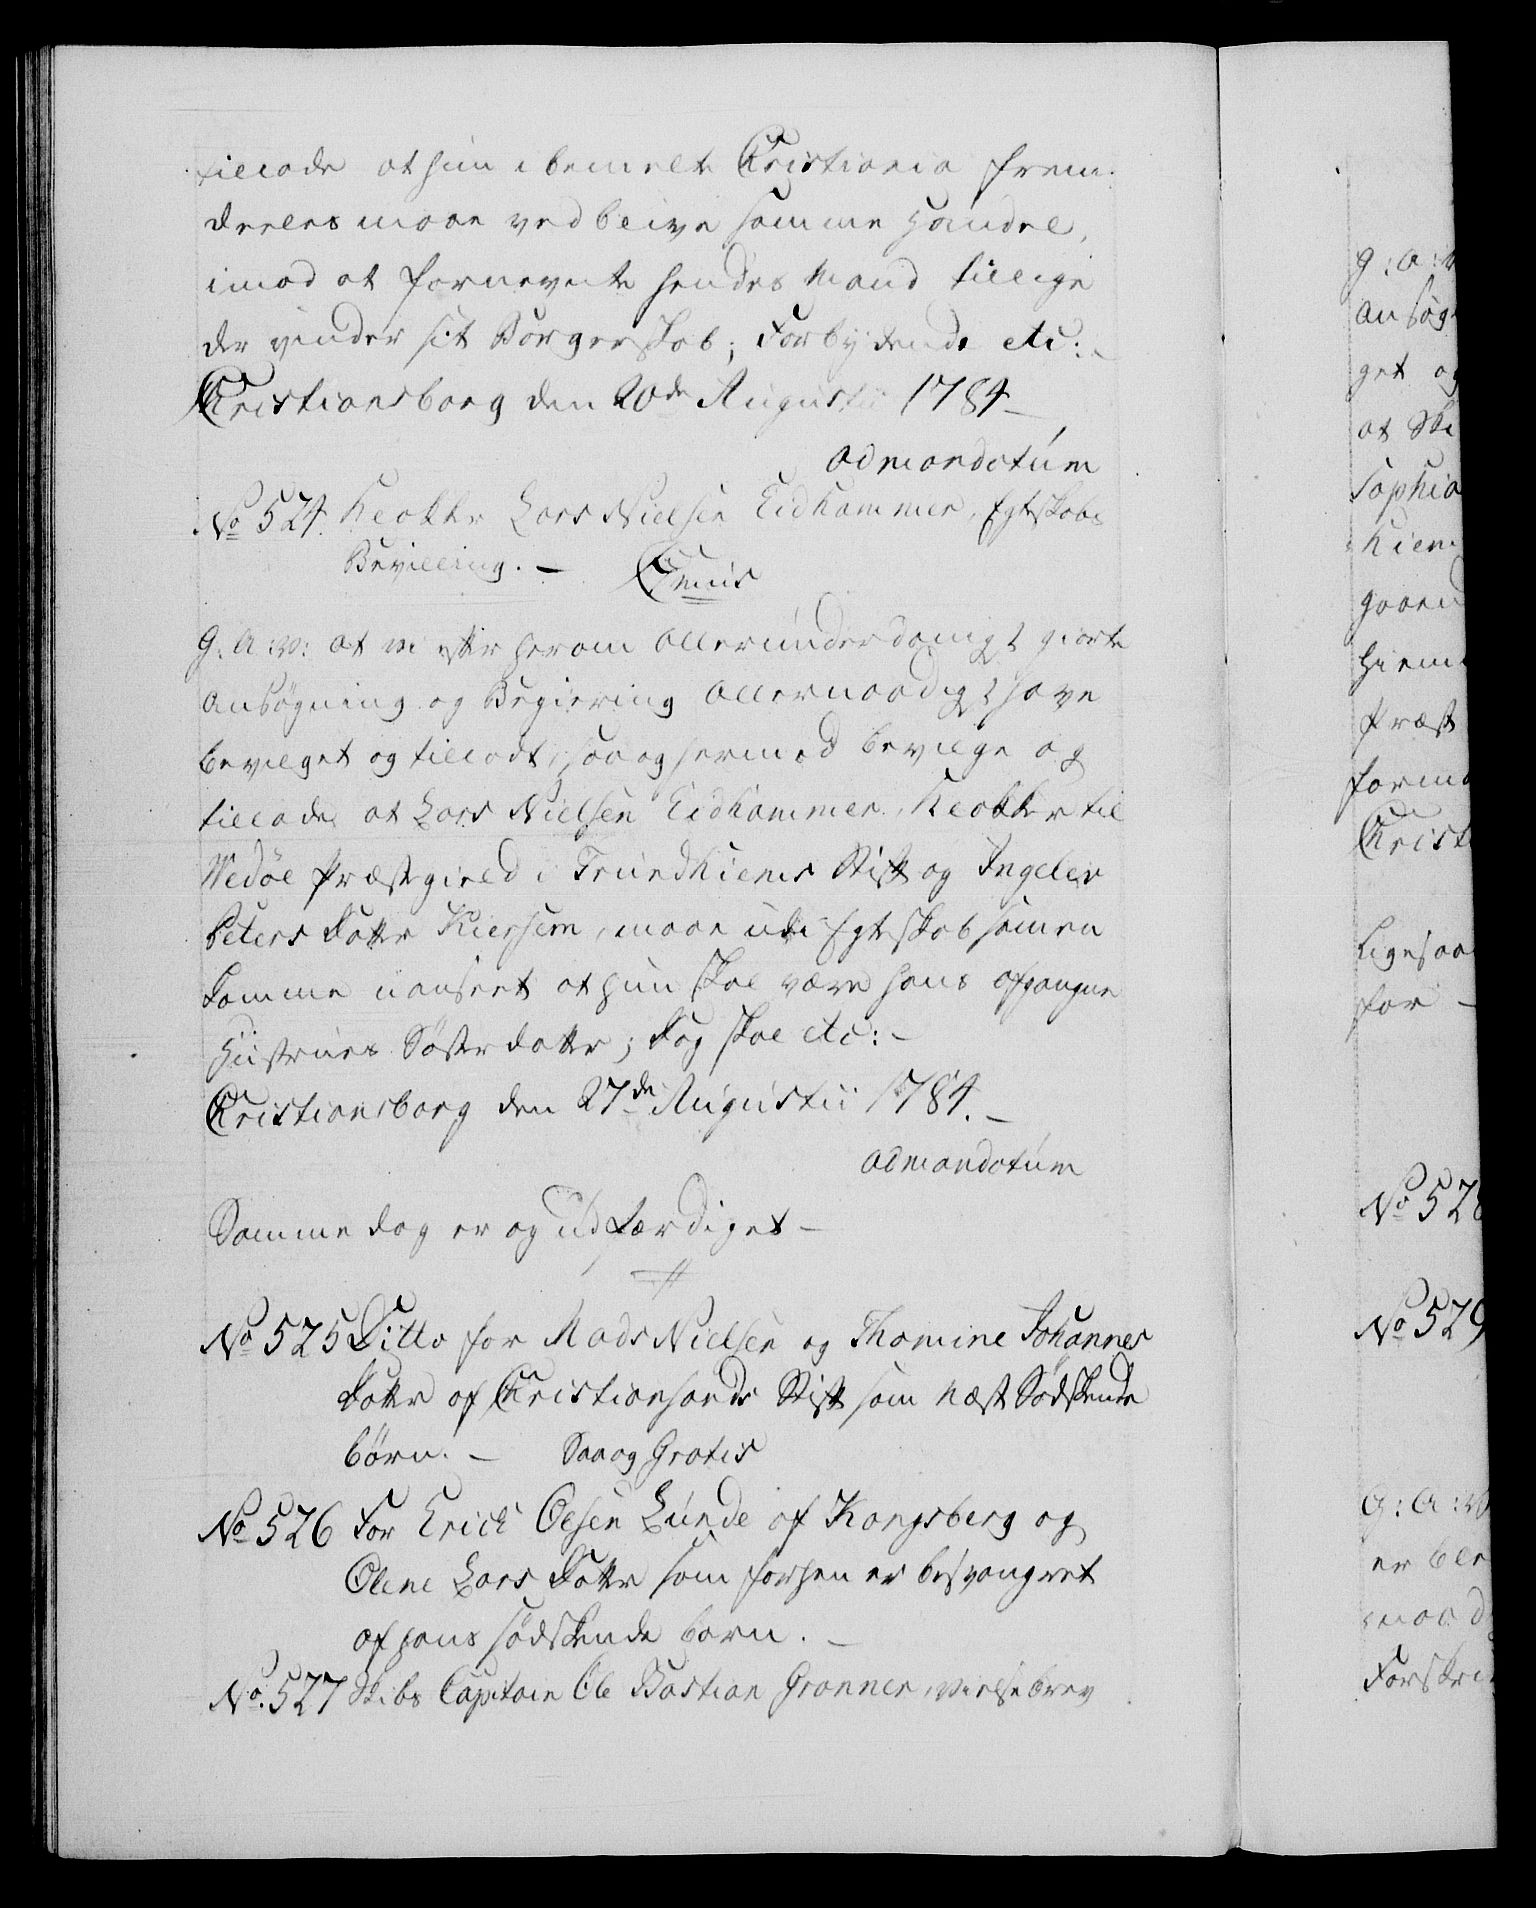 tillade at hun i bemelte Christiania frem-
deeles maae vedblive samme Handel,
imod at fornevnte hendes Mand tillige
der vinder sit Borgerskab; Forbydende etc:
Christiansborg den 20de Augustii 1784
ad mandatum
No 524 Klokker Lars Nielsen Eidhammer, Egteskabs
Bevilling. — Gratis
G: A: V: at vi efter herom allerunderdanigst giorte
Ansøgning og Begiering allernaadigst have
bevilget og tilladt, saa og hermed bevilge og
tillade at Lars Nielsen Eidhammer, Klokker til
Wedøe Præstegield i Trundhiems Stift og Ingelev
Peters Datter Kiersem, maae udi Egteskab sammen
komme uanseet at hun skal være hans afgangne
Hustrues Søsterdatter; dog skal etc: –
Christiansborg den 27de Augustii 1784. –
ad mandatum
Samme dag er og udfærdiget –
No 525 Ditto for Mads Nielsen og Thomine Johannes
Datter af Christiansands Stift som Næstsødskende
børn. – Saa og Gratis
No 526 For Erick Olsen Lunde af Kongsberg og
Olene Lars Datter som forhen er besvangret
af hans sødskende barn. –
No. 527 Skibs Capitain Ole Bastian Grønner, vielsebrev
G: A: V
Ansøg
get og
at Ski
Sophia
Kiem
gaaen
hiem
Præst
form
Christ
Ligesaa
for –
No 528
No 529
G: A: V
er ble
maa d
Forskri